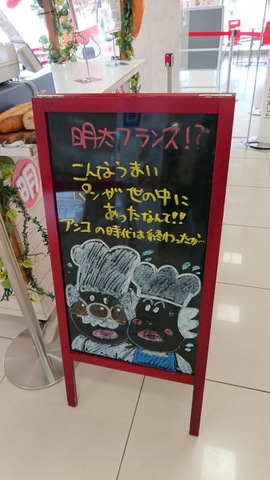 明太フランス!?
こんなうまい
パンが世の中に
あったなんて!!
アンコの時代は終わったか…